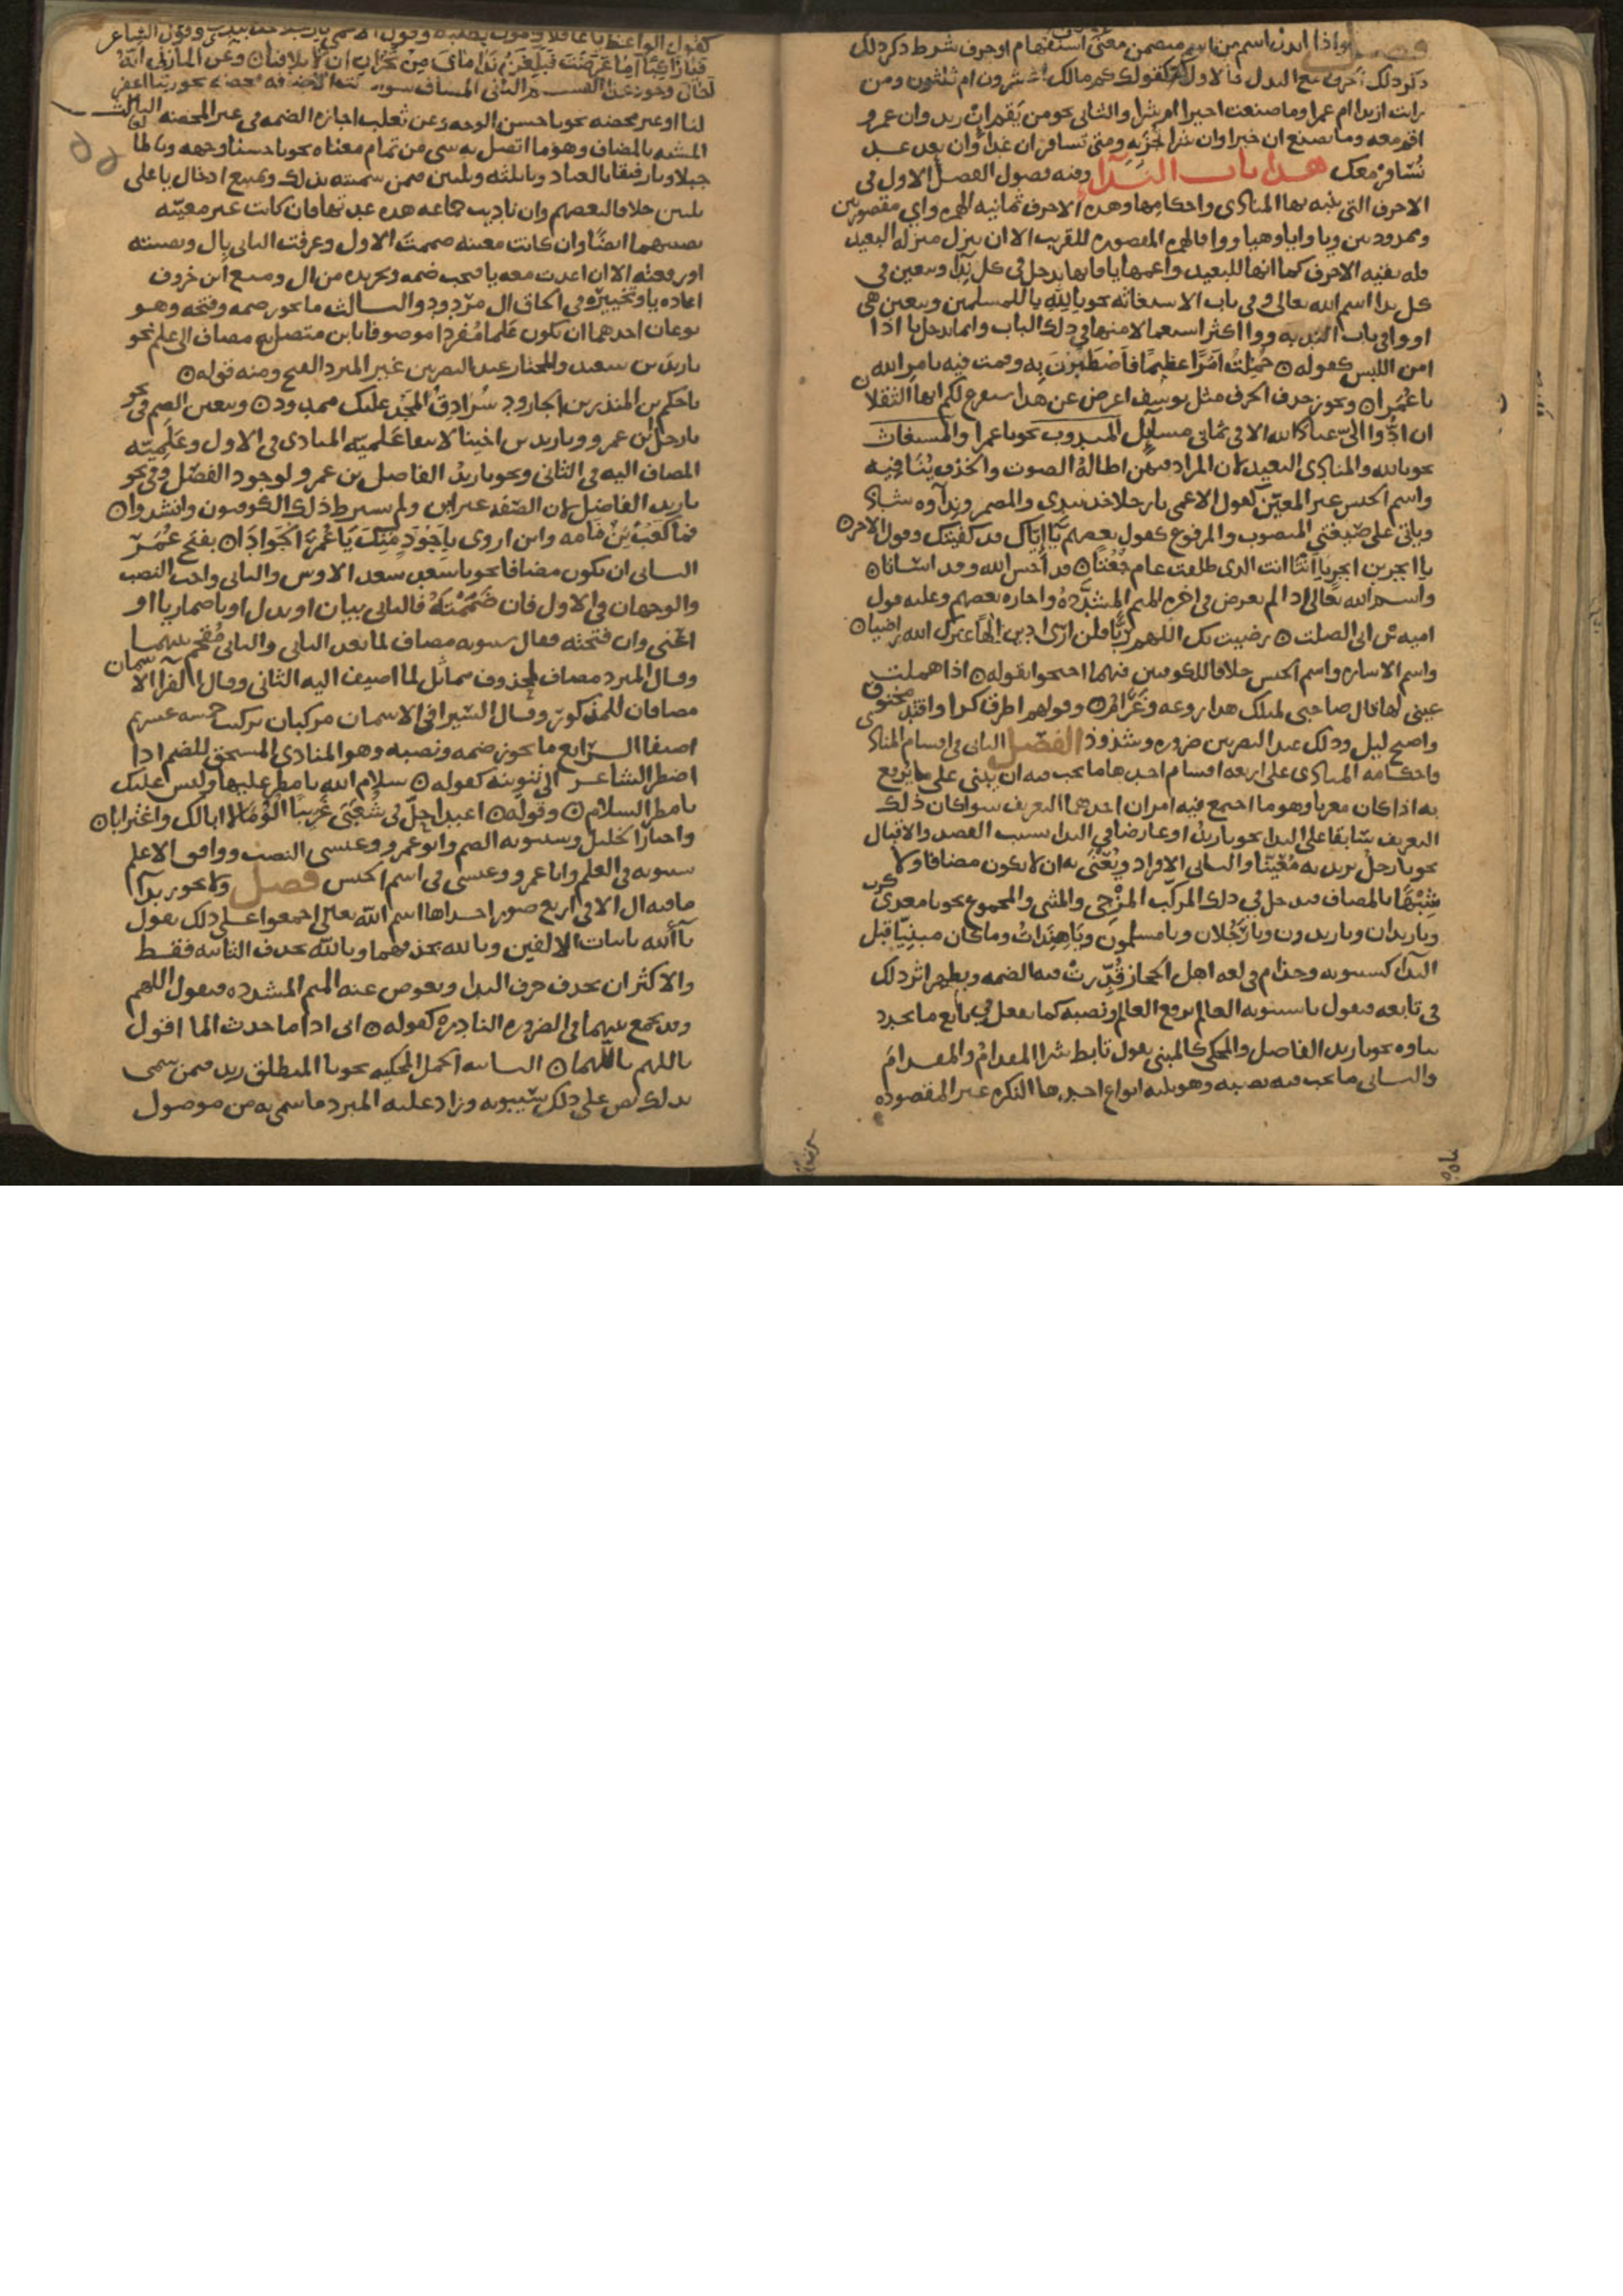 فصل واذا ابدل اسم من اسم متضمن معنى استفهام او حرف شرط ذكر ذلك
الحرف مع البدل فالاول كقولك كم مالك اعشرون ام ثلثون ومن
رايت ازيدا ام عمرا وما صنعت اخيرا ام شرا والثاني نحو من يقم ان زيد وان عمرو
اقم معه وما تصنع ان خيرا وان شرا تجز به ومتى تسافر ان غدا وان بعد غد
نُسَافرْ معك هذا باب النداء وفيه فصول الفصل الاول في
الاحرف التي ينبه بها المنادى واحكامها وهذه الاحرف ثمانية الهمزة واي مقصورتين
وممدودتين ويا وايا وهيا ووا فالهمزة المقصورة للقريب الا ان ينزل منزلة البعيد
فله بقية الاحرف كما انها للبعيد واعمها يا فانها تدخل في كل نداء وتتعين في
كل نداء اسم الله تعالى وفي باب الاستغاثة نحو يا لله يا للمسلمين وتتعين هي
او وا في باب الندبة ووا اكثر استعمالا منها في ذلك الباب وانما تدخل يا اذا
امن اللبس كقوله حُمِّلْتَ امْرًا عظيمًا فاصْطَبَرْتَ بِه وقمت فيه بامر الله
يا عُمَرا ويجوز حذف الحرف مثل يوسف اعرض عن هذا سنفرغ لكم ايها الثقلان
ان ادّوا اليّ عباد الله الا في ثماني مسايل المندوب نحو يا عمرا والمستغاث
نحو يا لله والمنادى البعيد لان المراد فيهن اطالة الصوت والحذف ينافيه
واسم الجنس غير المعيّن كقول الاعمى يا رجلا خذ بيدي والمضمر ونداوه شاذ
وياتي على صيغتي المنصوب والمرفوع كقول بعضهم يا اياك قد كفيتك وقول الاخر
يا ابجر بن ابجر يا انتا انت الذي طلقت عام جُعْتا قد احسن الله وقد اسأتا
واسم الله تعالى اذا لم يعوض في اخره الميم المشدَّدة واجازه بعضهم وعليه قول
امية بن ابي الصلت رضيت بك اللهم ربًّا فلن ارى ادين الها غيرك الله راضيا
واسم الاشارة واسم الجنس خلافا للكوفيين فيهما احتجوا بقوله اذا هملت
عيني لها قال صاحبي لمثلك هذا روعة وغَرامُ وقولهم اطرق كرا وافتد مخنوق
واصبح ليل وذلك عند البصريين ضرورة وشذوذ الفصل الثاني في اقسام المنادى
واحكامه المنادى على اربعة اقسام احدها ما يجب فيه ان يبنى على ما يرفع
به اذا كان معربا وهو ما اجتمع فيه امران احدهما التعريف سوا كان ذلك
التعريف سابقا على النداء نحو يا زيد او عارضا في النداء بسبب القصد والاقبال
نحو يا رجل يريد به مُعَيّنًا والثاني الافراد ويُعْنَى به ان لا يكون مضافا ولا
شبْهَهًا بالمضاف فيدخل في ذلك المركّب المزْجي والمثنى والمجموع نحو يا معدي كرب
ويا زيدان ويا زيدون ويا رَجُلان ويا مسلمون ويا هِنْدَاتُ وما كان مبنيّا قبل
النداء كسيبويه وحذام في لغة اهل الحجاز قُدّرتْ فيه الضمة ويظهر اثر ذلك
في تابعه فيقول يا سيبويه العالم برفع العالم ونصبه كما يفعل في تابع ما تجدد
بناوه نحو يا زيد الفاضل والمحكي كالمبني يقول تابط شرا المقدامُ والمقدامَ
والثاني ما يجب فيه نصبه وهو ثلثة انواع احدها النكرة غير المقصودة
كقول الواعظ يا غافلا والموت يطلبه وقول الاعمى يا رجلا خذ بيدي وقول الشاعر
فيا راكبًا امّا عَرَضْتَ فبَلِّغَنْ نَدَامَايَ مِنْ نَجْرَانَ ان لا تلاقيا وعن المازني انه
احال وجود هذا القسم الثاني المضاف سوا كانت الاضافة محضة نحو ربنا اغفر
لنا او غير محضة نحو يا حسن الوجه وعن ثعلب اجازة الضمة في غير المحضة الثالث
المشبه بالمضاف وهو ما اتصل به شي من تمام معناه نحو يا حسنا وجهه ويا طالعا
جبلا ويا رفيقا بالعباد ويا ثلثة وثلثين فيمن سميته بذلك ويمتنع ادخال يا على
ثلثين خلافا لبعضهم وان ناديت جماعة هذه عدتها فان كانت غير معيّنة
نصبتهما ايضا وان كانت معينة ضممت الاول وعرفت الثاني بال ونصبته
او رفعته الا ان اعدت معه يا فيجب ضمه وتجريده من ال ومنع ابن خروف
اعادة يا وتخييره في الحاق ال مردود والثالث ما يجوز ضمه وفتحه وهو
نوعان احدهما ان يكون علما مُفردا موصوفا بابن متصل به مضاف الى علم نحو
يا زيد بن سعيد والمختار عند البصريين غير المبرد الفتح ومنه قوله
يا حكم بن المنذر بن الجارود سُرَادِقُ المجْد عليك ممدود ويتعين الضم في نحو
يا رجل ابن عمرو ويا زيد بن اخينا لانتفا عَلميّة المنادى في الاول وعَلَمِيّة
المضاف اليه في الثاني ونحو يا زيدُ الفاضل بن عمرو لوجود الفصل وفي نحو
يا زيد الفاضل لان الصّفة غير ابن ولم يشترط ذلك الكوفيون وانشدوا
فما كَعْبُ بْنُ مَامَة وابن اروى باجْوَدَ مِنْكَ يَا عُمَرَ الجَوادَا بفتح عُمَرَ
الثاني ان يكون مضافا نحو يا سعد سعد الاوس والثاني واجب النصب
والوجهان في الاول فان ضَمَمْتَهُ فالثاني بيان او بدل او باضمار يا او
اعْني وان فتحته فقال سيبويه مضاف لما بعد الثاني والثاني مُقْحَم بينهما
وقال المبرد مضاف لمحذوف مماثل لما اضيف اليه الثاني وقال الفرا الاسمان
مضافان للمذكور وقال السّيرافي الاسمان مركبان تركيب خمسة عشر ثم
اضيفا الرّابع ما يجوز ضمه ونصبه وهو المنادى المستحق للضم اذا
اضطر الشاعر الى تنوينه كقوله سلام الله يا مطر عليها وليس عليك
يا مطر السلام وقوله اعبدا حلّ في شُعَبَى غَريبًا الُؤْمًا لا ابا لك واغترابا
واختار الخليل وسيبويه الضم وابو عمرو وعيسى النصب ووافق الاعلم
سيبويه في العلم وابا عمرو وعيسى في اسم الجنس فصل ولا يجوز نداء
ما فيه ال الا في اربع صور احداها اسم الله تعالى اجمعوا على ذلك يقول
يا أَلله باثبات الالفين ويلله بحذفهما ويا لله بحذف الثانية فقط
والاكثر ان يحذف حرف النداء ويعوض عنه الميم المشدده فيقول اللهم
وقد يجمع بينهما في الضرورة النادرة كقوله اني اذا ما حدث الما اقول
يا اللهم يا اللهما الثانية الجمل المحكية نحو يا المنطلق زيد فيمن سمى
بذلك نص على ذلك سيبويه وزاد عليه المبرد ما سمي به من موصول